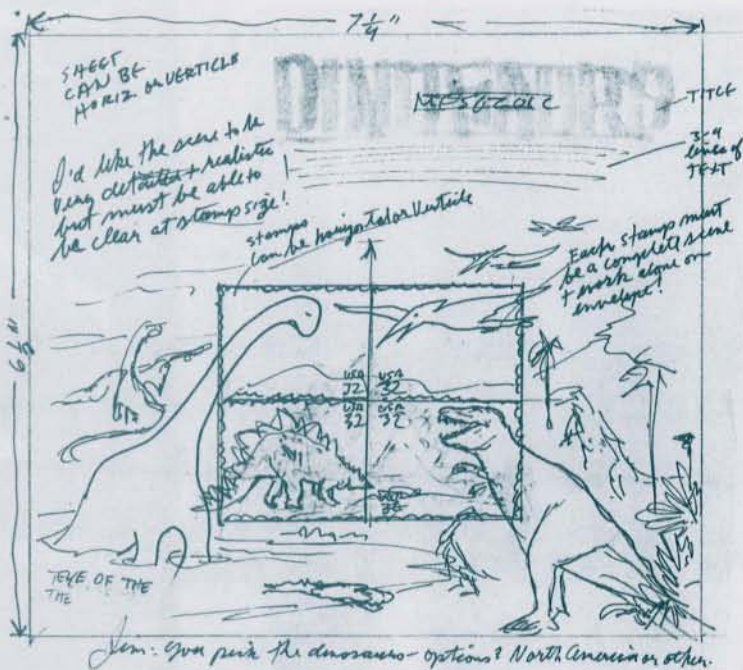 7 1/4"
SHEET
CAN BE
HORIZ or VERTICLE
MESOZOIC
TITLE
3-4
lines of
TEXT
I'd like the scene to be
very detailed + realistic
but must be able to
be clear at stamp size!
stamps
can be horizontal or Verticle
Each stamp must
be a complete scene
+ work alone on
envelope!
6 1/2"
USA USA
32 32
USA USA
32 32
USA
32
OF THE
THE
Jim: you pick the dinosaurs - options? North America or other.